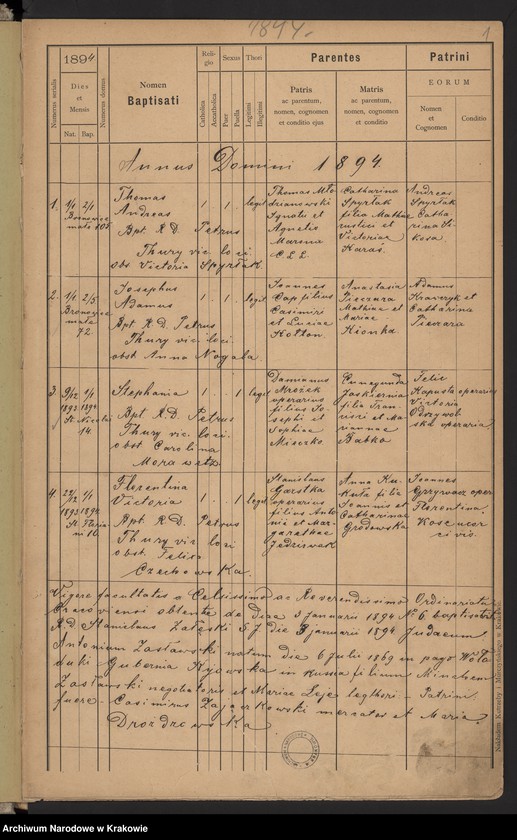 1894.
1
Numerus serialis
1894
Dies
et
Mensis
Nat.
Bap.
Numerus domus
Nomen
Baptisati
Reli-
gio
Catholica
Acatholica
Sexus
Puer
Puella
Thori
Legitimi
Illegitimi
Parentes
Patris
ac parentum,
nomen, cognomen
et conditio ejus
Matris
ac parentum,
nomen, cognomen
et conditio
Patrini
EORUM
Nomen
et
Cognomen
Conditio
Annus Domini 1894.
1. 1/1 2/1
Bronowice
mała 105.
Thomas
Andreas
Bpt R D Petrus
Thury vic loci
obs Victoria Spyrłak.
1 . 1 . legit
Thomas Mło
dzianowski
Ignatii et
Agnetis
Marsna
Catharina
Spyrłak
filia Mathiae
rustici et
Victoriae
Karaś.
Andreas
Spyrłak
Catha
rina Si
kora
2. 1/1 2/5
Bronowice
mała
72.
Josephus
Adamus
Bpt R. D. Petrus
Thury vic loci.
obst Anna Nogala.
1 . 1 . legit
Joannes
Cap filius
Casimiri
et Luciae
Kotton.
Anastasia
Pieczara
Mathiae et
Mariae
Kionka
Adamus
Krawczyk et
Catharina
Pieczara
3 9/12 1/1
1893 1894
St. Nicolai
14.
Stephania
Bpt R.D. Petrus
Thury vic loci.
obst Carolina
Morawetz.
1 . . 1 legit
Damianus
Mrożek
operarius
filius Jo
sephi et
Sophiae
Miseczko
Cunegunda
Jaskiernia
filia Fran
cisci et Ma
riannae
Babko
Felix
Kapusta operarius
Victoria
Odrzywol
ska operaria
4. 22/12 1/1
1893 1894
St. Floria
ni 16.
Florentina
Victoria
Bpt R D. Petrus
Thury vic loci
obst. Felixa
Czechowska.
1 . . 1 legit
Stanislaus
Garstka
operarius
filius Anto
nii et Mar
garethae
Jędrzywek
Anna Ku
kuła filia
Joannis et
Catharinae
Grodowska
Joannes
Grzywacz oper
Florentina
Koscucar
civis.
Vigore facultatis a Celsissimo ac Reverendissimo Ordinariatu
Cracoviensi obtentae de die 3 Januarii 1894 N° 6. baptisatus
R.D Stanislaus Załęski S J die 8 januarii 1894 Judaeum
Antonium Zasławski natum die 6 Julii 1869 in pago Woło
duki - Gubernia Kijowska in Russia filium Minchem
Zasławski negotiatoris et Mariae Leje legthori - Patrini
fuere - Casimirus Zajączkowski mercator et Maria
Drozdzewska
Nakładem Kotrschy i Mięczyńskiego w Krakowie
Archiwum Narodowe w Krakowie